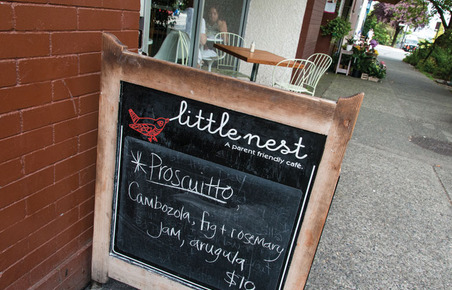 little nest
A parent friendly café.
*Proscuitto,
Cambozola, fig + rosemary
Jam, arugula
$10